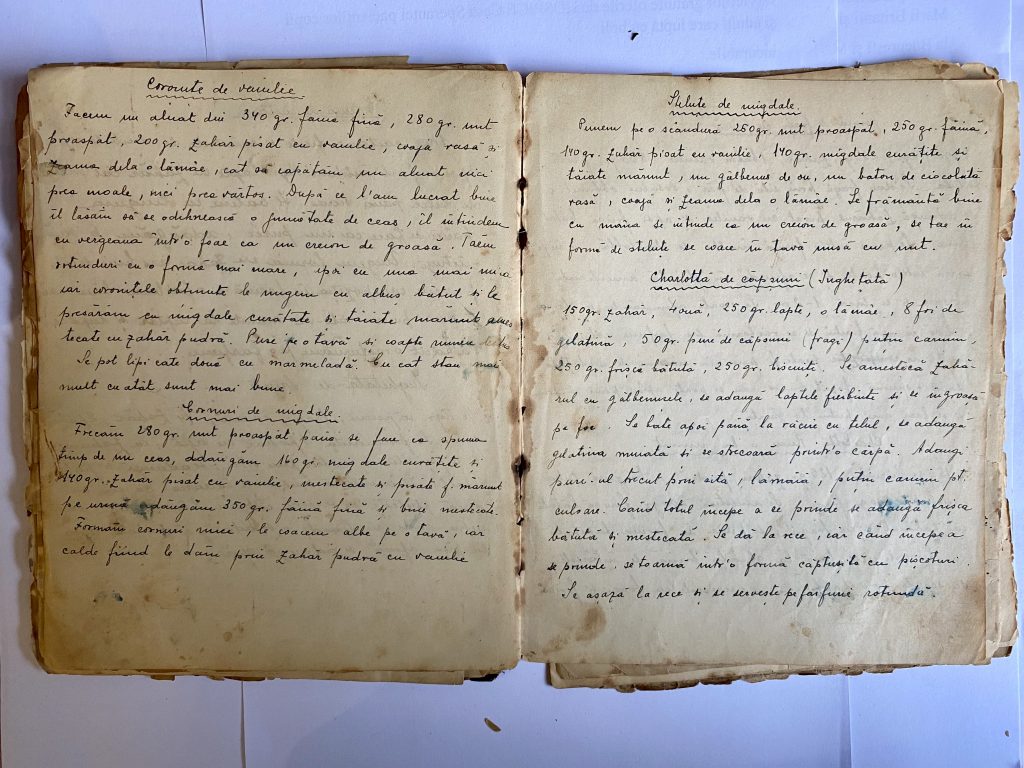 Coronite de vanilie
Facem un aluat din 340 gr. faină fină, 280 gr. unt
proaspăt, 200 gr. zahăr pisat cu vanilie, coajă rasă și
zeama dela o lămâe, cat să capătăm un aluat nici
prea moale, nici prea vârtos. După ce l'am lucrat bine
îl lăsăm să se odihnească o jumătate de ceas, îl intindem
cu vergeaua într'o foae ca un creion de groasă. Taem
rotunduri cu o formă mai mare, apoi cu una mai mica
iar coronițele obtinute le ungem cu albus bătut și le
presărăm cu migdale curătate si tăiate mărunt ames
tecate cu zahăr pudră. Puse pe o tavă si coapte
Se pot lipi cate două cu marmeladă. Cu cat stau mai
mult cu atât sunt mai bune
Cornuri de migdale.
Frecăm 280 gr. unt proaspăt până se face ca spuma
timp de un ceas, adăugăm 160 gr. migdale curătite si
140 gr. zahăr pisat cu vanilie, mestecate si pisate f. mărunt
pe urmă adăugăm 350 gr. făină fină și bine mestecate.
Formăm cornuri mici, le coacem albe pe o tavă, iar
calde fiind le dăm prin zahăr pudră cu vanilie
Stelute de migdale.
Punem pe o scândură 250 gr. unt proaspăt, 250 gr. făină,
140 gr. zahăr pisat cu vanilie, 140 gr. migdale curătite si
tăiate mărunt, un gălbenus de ou, un baton de ciocolată
rasă, coajă și zeama dela o lămâe. Se frământă bine
cu mâna se intinde ca un creion de groasă, se tae in
formă de stelute se coace în tavă unsă cu unt.
Charlottă de căpsuni (Inghetată)
150 gr. zahăr, 4 ouă, 250 gr. lapte, o lămâe, 8 foi de
gelatină, 50 gr. piure de căpsuni (fragi) putin carmin,
250 gr. friscă bătută, 250 gr. biscuiti. Se amestecă zahă-
rul cu gălbenusele, se adaugă laptele fierbinte și se îngroasă
pe foc. Se bate apoi până la răcire cu telul, se adaugă
gelatina muiată si se strecoară printr'o cârpă. Adaugi
piure-ul trecut prin sită, lămâia, puțin carmin pt.
culoare. Când totul începe a se prinde se adaugă frisca
bătută si mestecată. Se dă la rece, iar când incepe a
se prinde, se toarnă intr'o formă căptusită cu pișcoturi.
Se așază la rece si se servește pe farfurie rotundă.